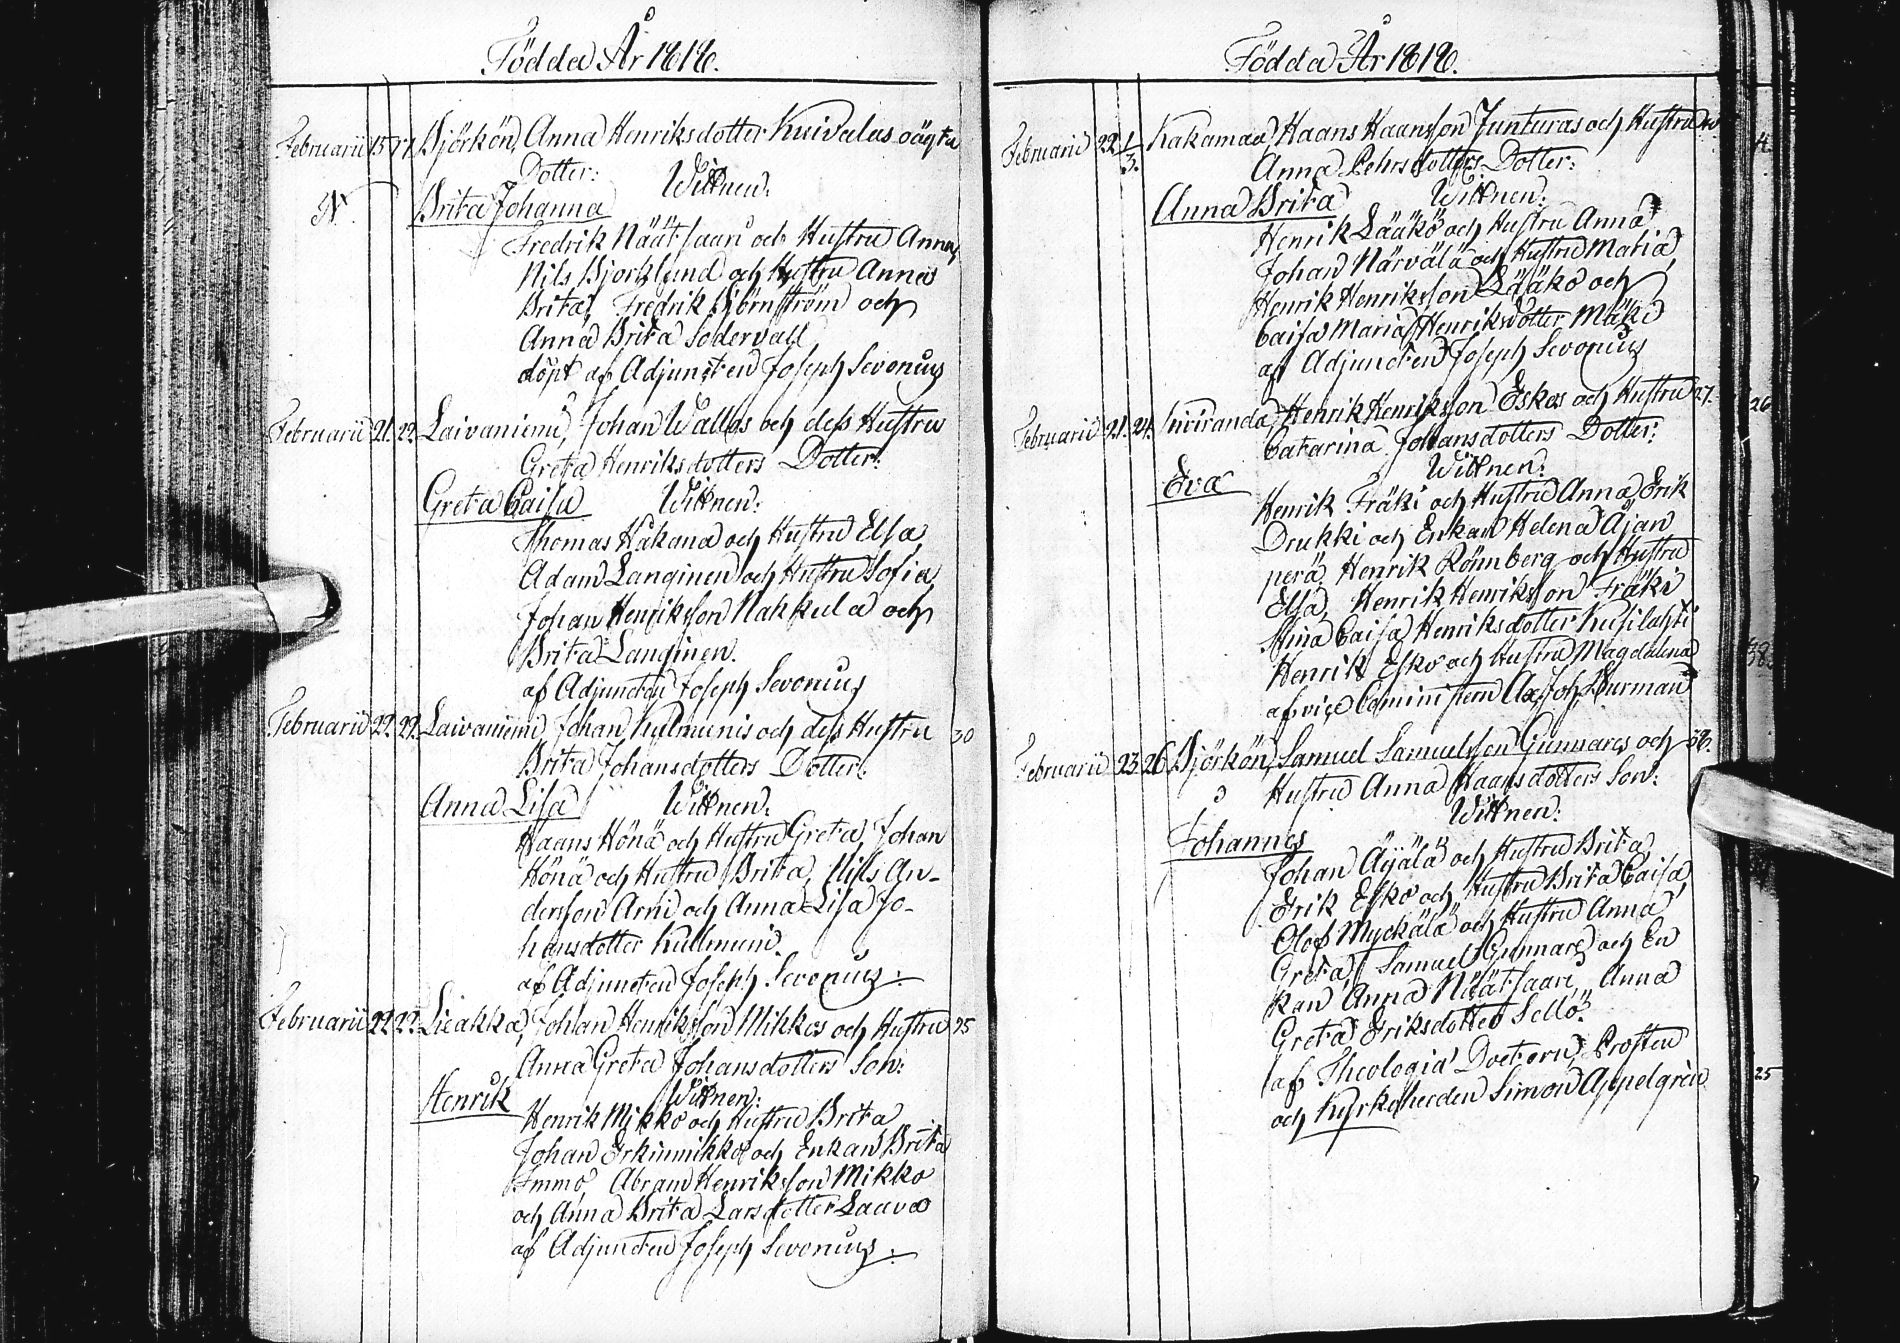 Födda År 1818.
Februarii 15 17 Björkön, Anna Henriksdotter Kuivalas oägta
Dotter: Wittnen:
N
Brita Johanna
Fredrik Näätsaari och Hustru Anna,
Nils Björklund och Hustru Anna
Brita, Fredrik Björnström och
Anna Brita Södervall
döpt af Adjuncten Joseph Sevonius
Februarii 21. 22. Laivaniemi, Johan Wallas och dess Hustru
Greta Henriksdotters Dotter:
Greta Caisa Wittnen:
Thomas Hakana och Hustru Elsa,
Adam Langinen och Hustru Sofia,
Johan Henriksson Nakkula och
Brita Langinen.
af Adjuncten Joseph Sevonius
Februarii 22. 22. Laivaniemi, Johan Kulmunis och dess Hustru 30
Brita Johansdotters Dotter:
Anna Lisa Wittnen:
Haans Hönä och Hustru Greta, Johan
Hönä och Hustru Brita, Nils An-
dersson Arni och Anna Lisa Jo-
hansdotter Kullmuni.
af Adjuncten Joseph Sevonius:
Februarii 22. 22. Liedakka, Johan Henriksson Mikkos och Hustru 25
Anna Greta Johansdotters Son:
Henrik Wittnen:
Henrik Mikko och Hustru Brita
Johan Erkinmikko och Enkan Brita
Immo, Abram Henriksson Mikko
och Anna Brita Larsdotter Laavo
af Adjuncten Joseph Sevonius:
Födda År 1818.
Februarii 22. 1/3. Kakamaa, Haans Haansson Junturas och Hustru
Anna Pehrsdotters Dotter:
Anna Brita Wittnen:
Henrik Lääkö och Hustru Anna,
Johan Närvälä och Hustru Maria,
Henrik Henriksson Lääkö och
Caisa Maria Henriksdotter Mäki
af Adjuncten Joseph Sevonius
Februarii 21. 24. Kuiviranda, Henrik Henriksson Eskos och Hustru 27.
Catarina Johansdotters Dotter:
Wittnen:
Eva
Henrik Fräki och Hustru Anna, Erik
Drukki och Enkan Helena Äjan
perä, Henrik Rönnberg och Hustru
Elsa, Henrik Henriksson Fräki
Stina Caisa Henriksdotter Kusilahti
Henrik Esko och Hustru Magdalena
af vice Comministern Ax. Joh. Burman
Februarii 23. 26 Björkön, Samuel Samuelsson Gunnares och 38.
Hustru Anna Haansdotters Son:
Wittnen:
Johannes
Johan Äyälä och Hustru Brita,
Erik Esko och Hustru Brita Caisa,
Olof Myckälä och Hustru Anna
Greta, Samuel Gunnare och En
kan Anna Näätsaari, Anna
Greta Eriksdotter Sellö.
af Theologiæ Doctorn, Prosten
och Kyrkoherden Simon Appelgrén